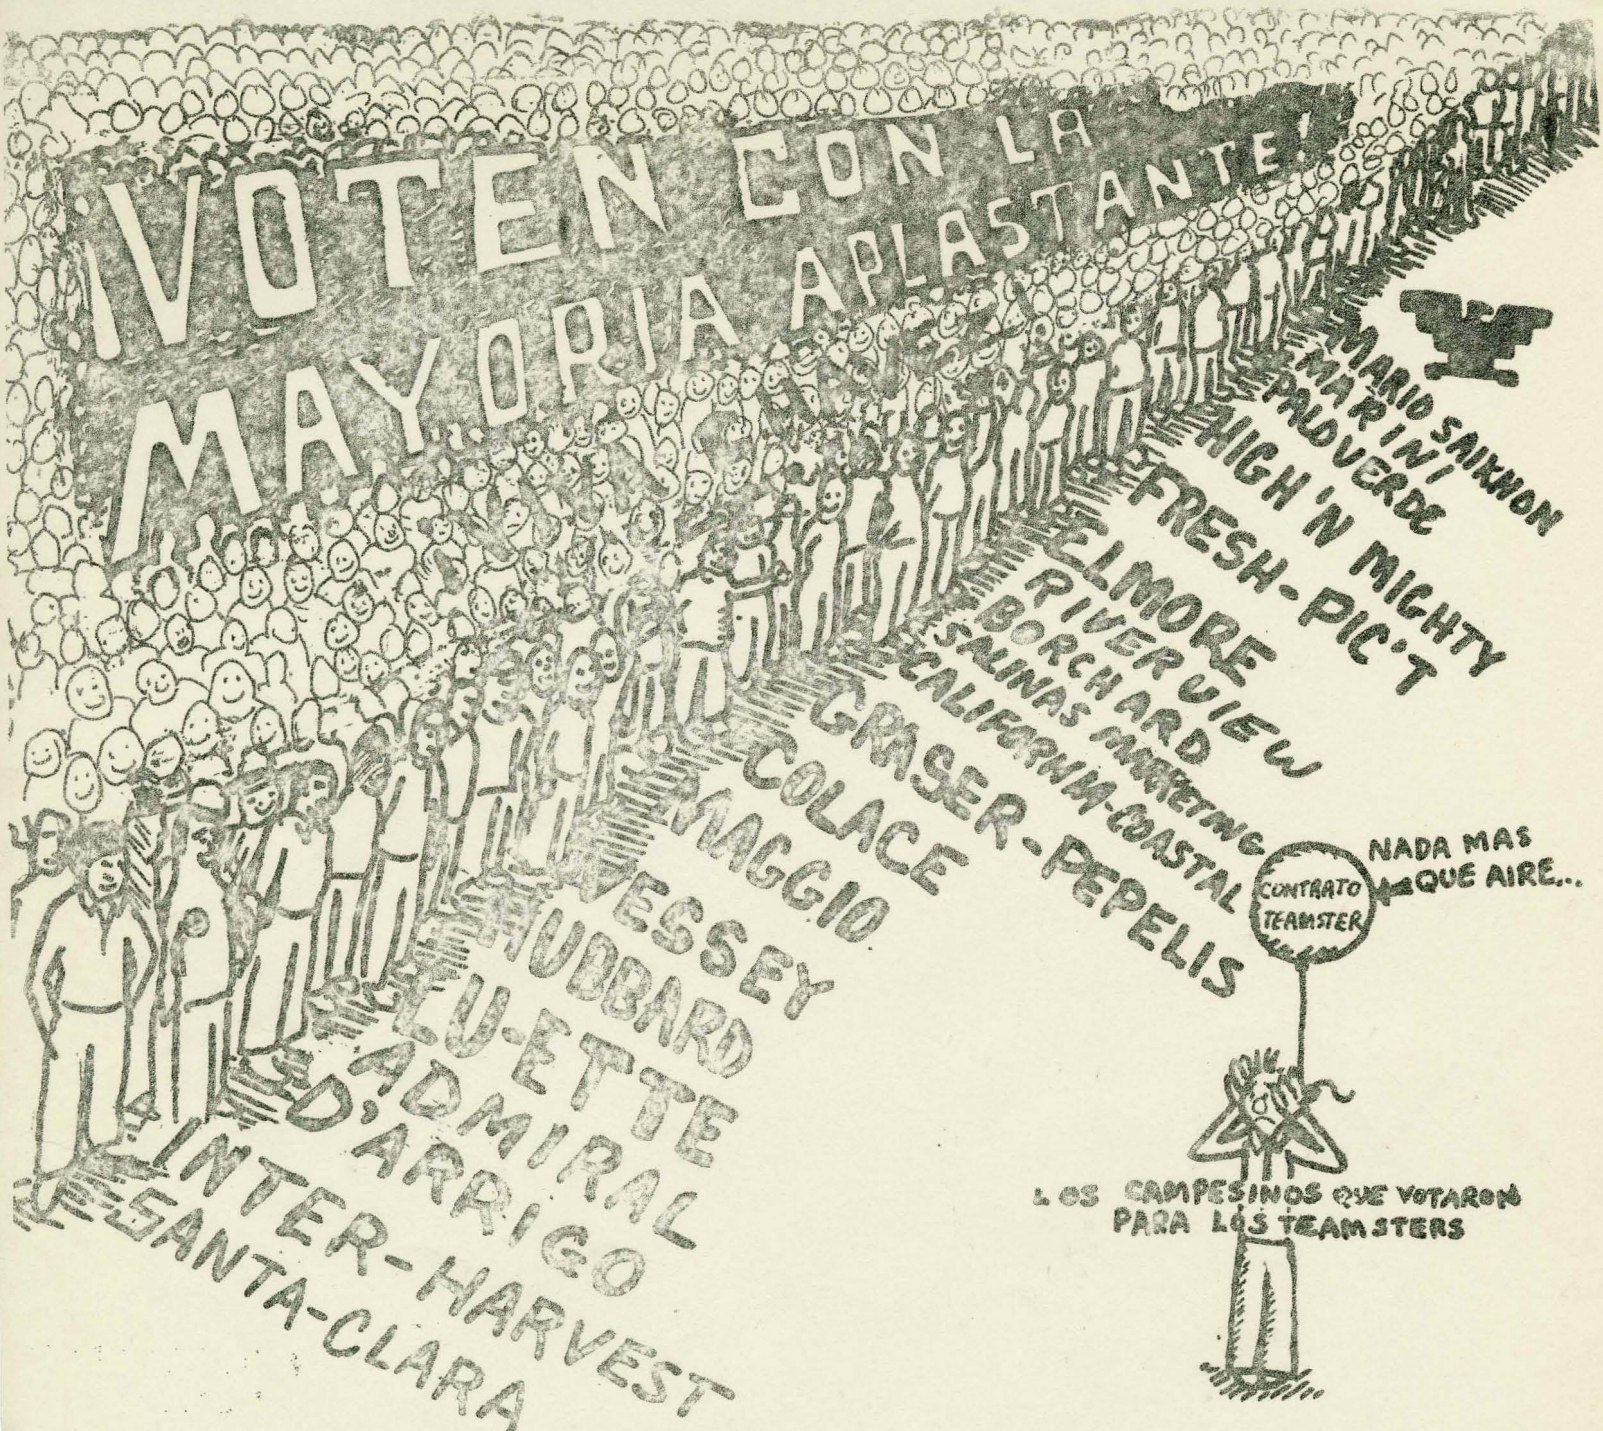 ¡VOTEN CON LA
MAYORIA APLASTANTE!
MARIO SAIKHON
MARINI
PALO VERDE
HIGH 'N MIGHTY
FRESH-PIC'T
ELMORE
RIVER VIEW
BORCHARD
SALINAS MARKETING
CALIFORNIA-COASTAL
GRASER-PEPELIS
COLACE
MAGGIO
VESSEY
HUBBARD
LU-ETTE
ADMIRAL
D'ARRIGO
INTER-HARVEST
SANTA-CLARA
NADA MAS
QUE AIRE...
CONTRATO
TEAMSTER
LOS CAMPESINOS QUE VOTARON
PARA LOS TEAMSTERS